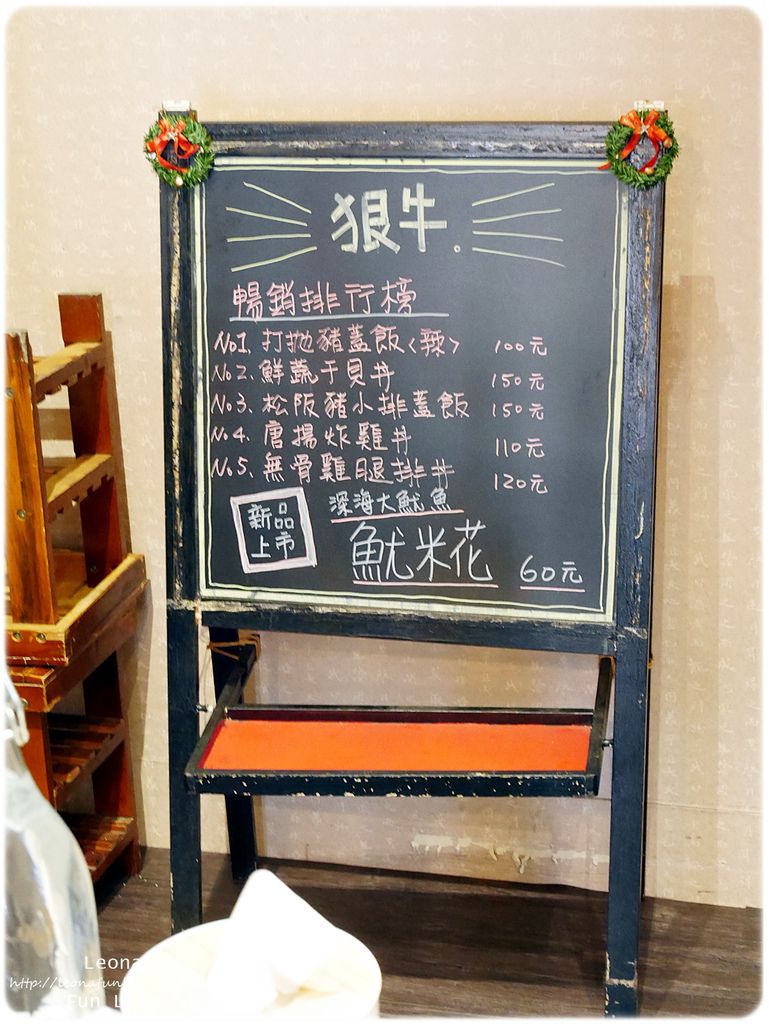 狠牛.
暢銷排行榜
No1. 打拋豬蓋飯<辣> 100元
No2. 鮮蔬干貝丼 150元
No3. 松阪豬小排蓋飯 150元
No4. 唐揚炸雞丼 110元
No5. 無骨雞腿排丼 120元
新品上市
深海大魷魚
魷米花 60元
Leona
http://leonafun
Fun L